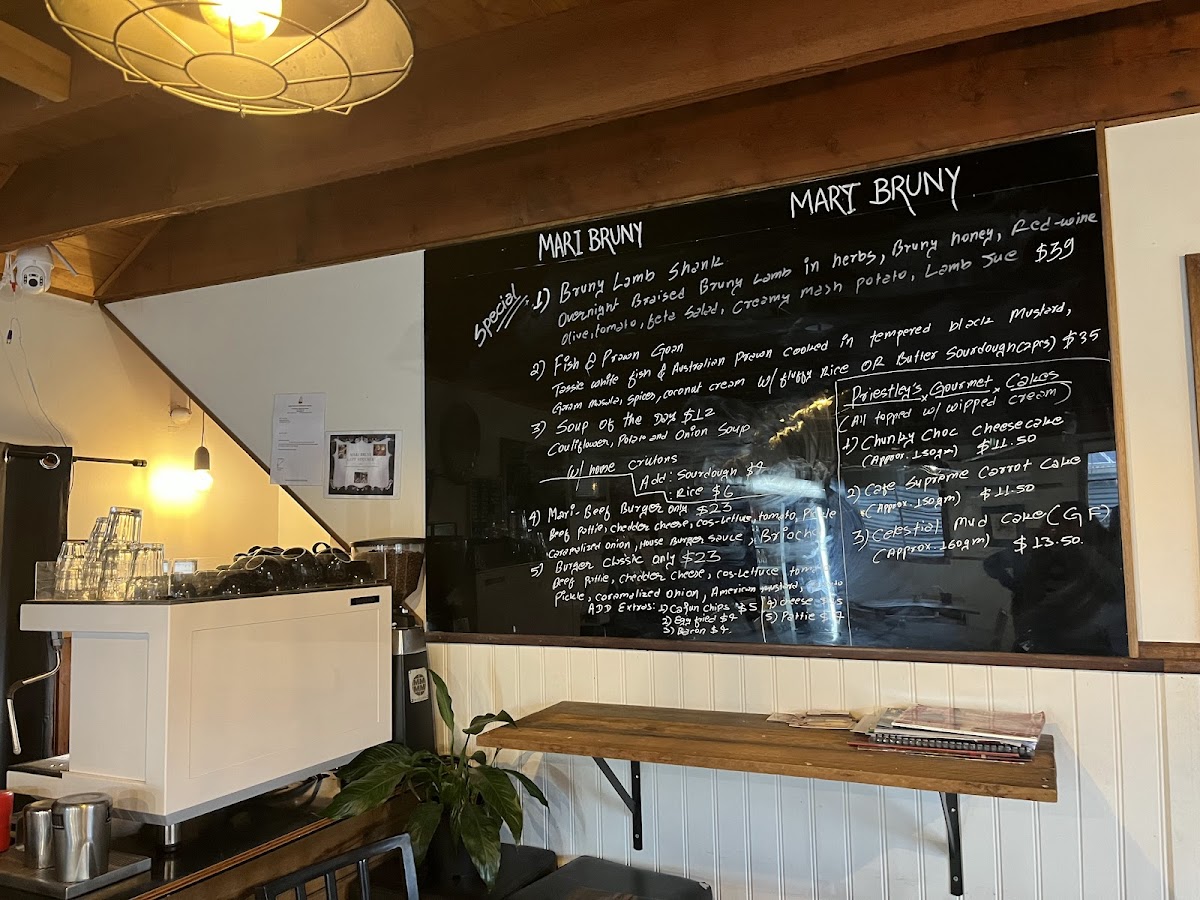 MARI BRUNY
MARI BRUNY
Special
1) Bruny Lamb Shank
Overnight Braised Bruny Lamb in herbs, Bruny honey, Red-wine
Olive, tomato, feta Salad, Creamy mash potato, Lamb Jue $39
2) Fish & Prawn Goan
Tassie white fish & Australian Prawn cooked in tempered black Mustard,
Garam Masala, Spices, coconut cream w/ fluffy Rice OR Butter Sourdough(2pcs) $35
3) Soup of the Day $12
Cauliflower, Potato and Onion Soup
w/ home crutons
Add: Sourdough $4
: Rice $6
4) Mari-Beef Burger only $23
Beef Pattie, chedder cheese, cos-lettuce, tomato, Pickle
Caramalized onion, House Burger sauce, Brioche
5) Burger Classic Only $23
Beef Pattie, chedder cheese, cos-lettuce
Pickle, caramalized onion, American mustard,
ADD Extras: 1) Cajun chips $5
2) Egg fried $4
3) Bacon $4
4) cheese
5) Pattie
Priestley's Gourmet Cakes
(All topped w/ wipped cream)
1) Chunky Choc cheesecake
(Approx. 150gm) $11.50
2) Cafe Supreme Carrot Cake
(Approx 150gm) $11.50
3) Celestial Mud cake (GF)
(Approx 160gm) $13.50.